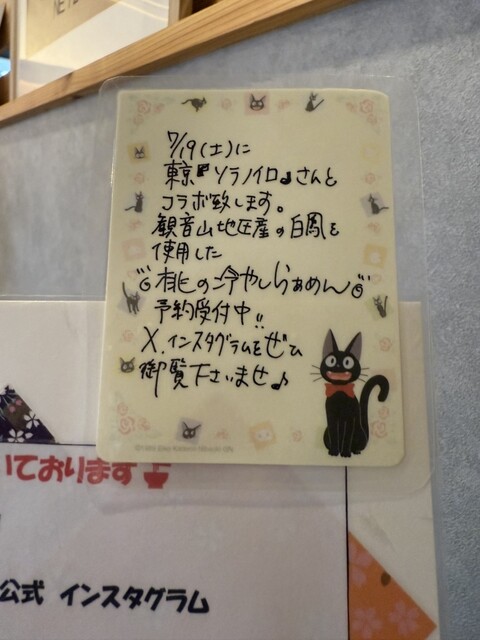 7/19(土)に
東京『ソラノイロ』さんと
コラボ致します。
観音山地区産の白鳳を
使用した
桃の冷やしらぁめん
予約受付中!!
X.インスタグラムをぜひ
御覧下さいませ♪
いております
公式 インスタグラム